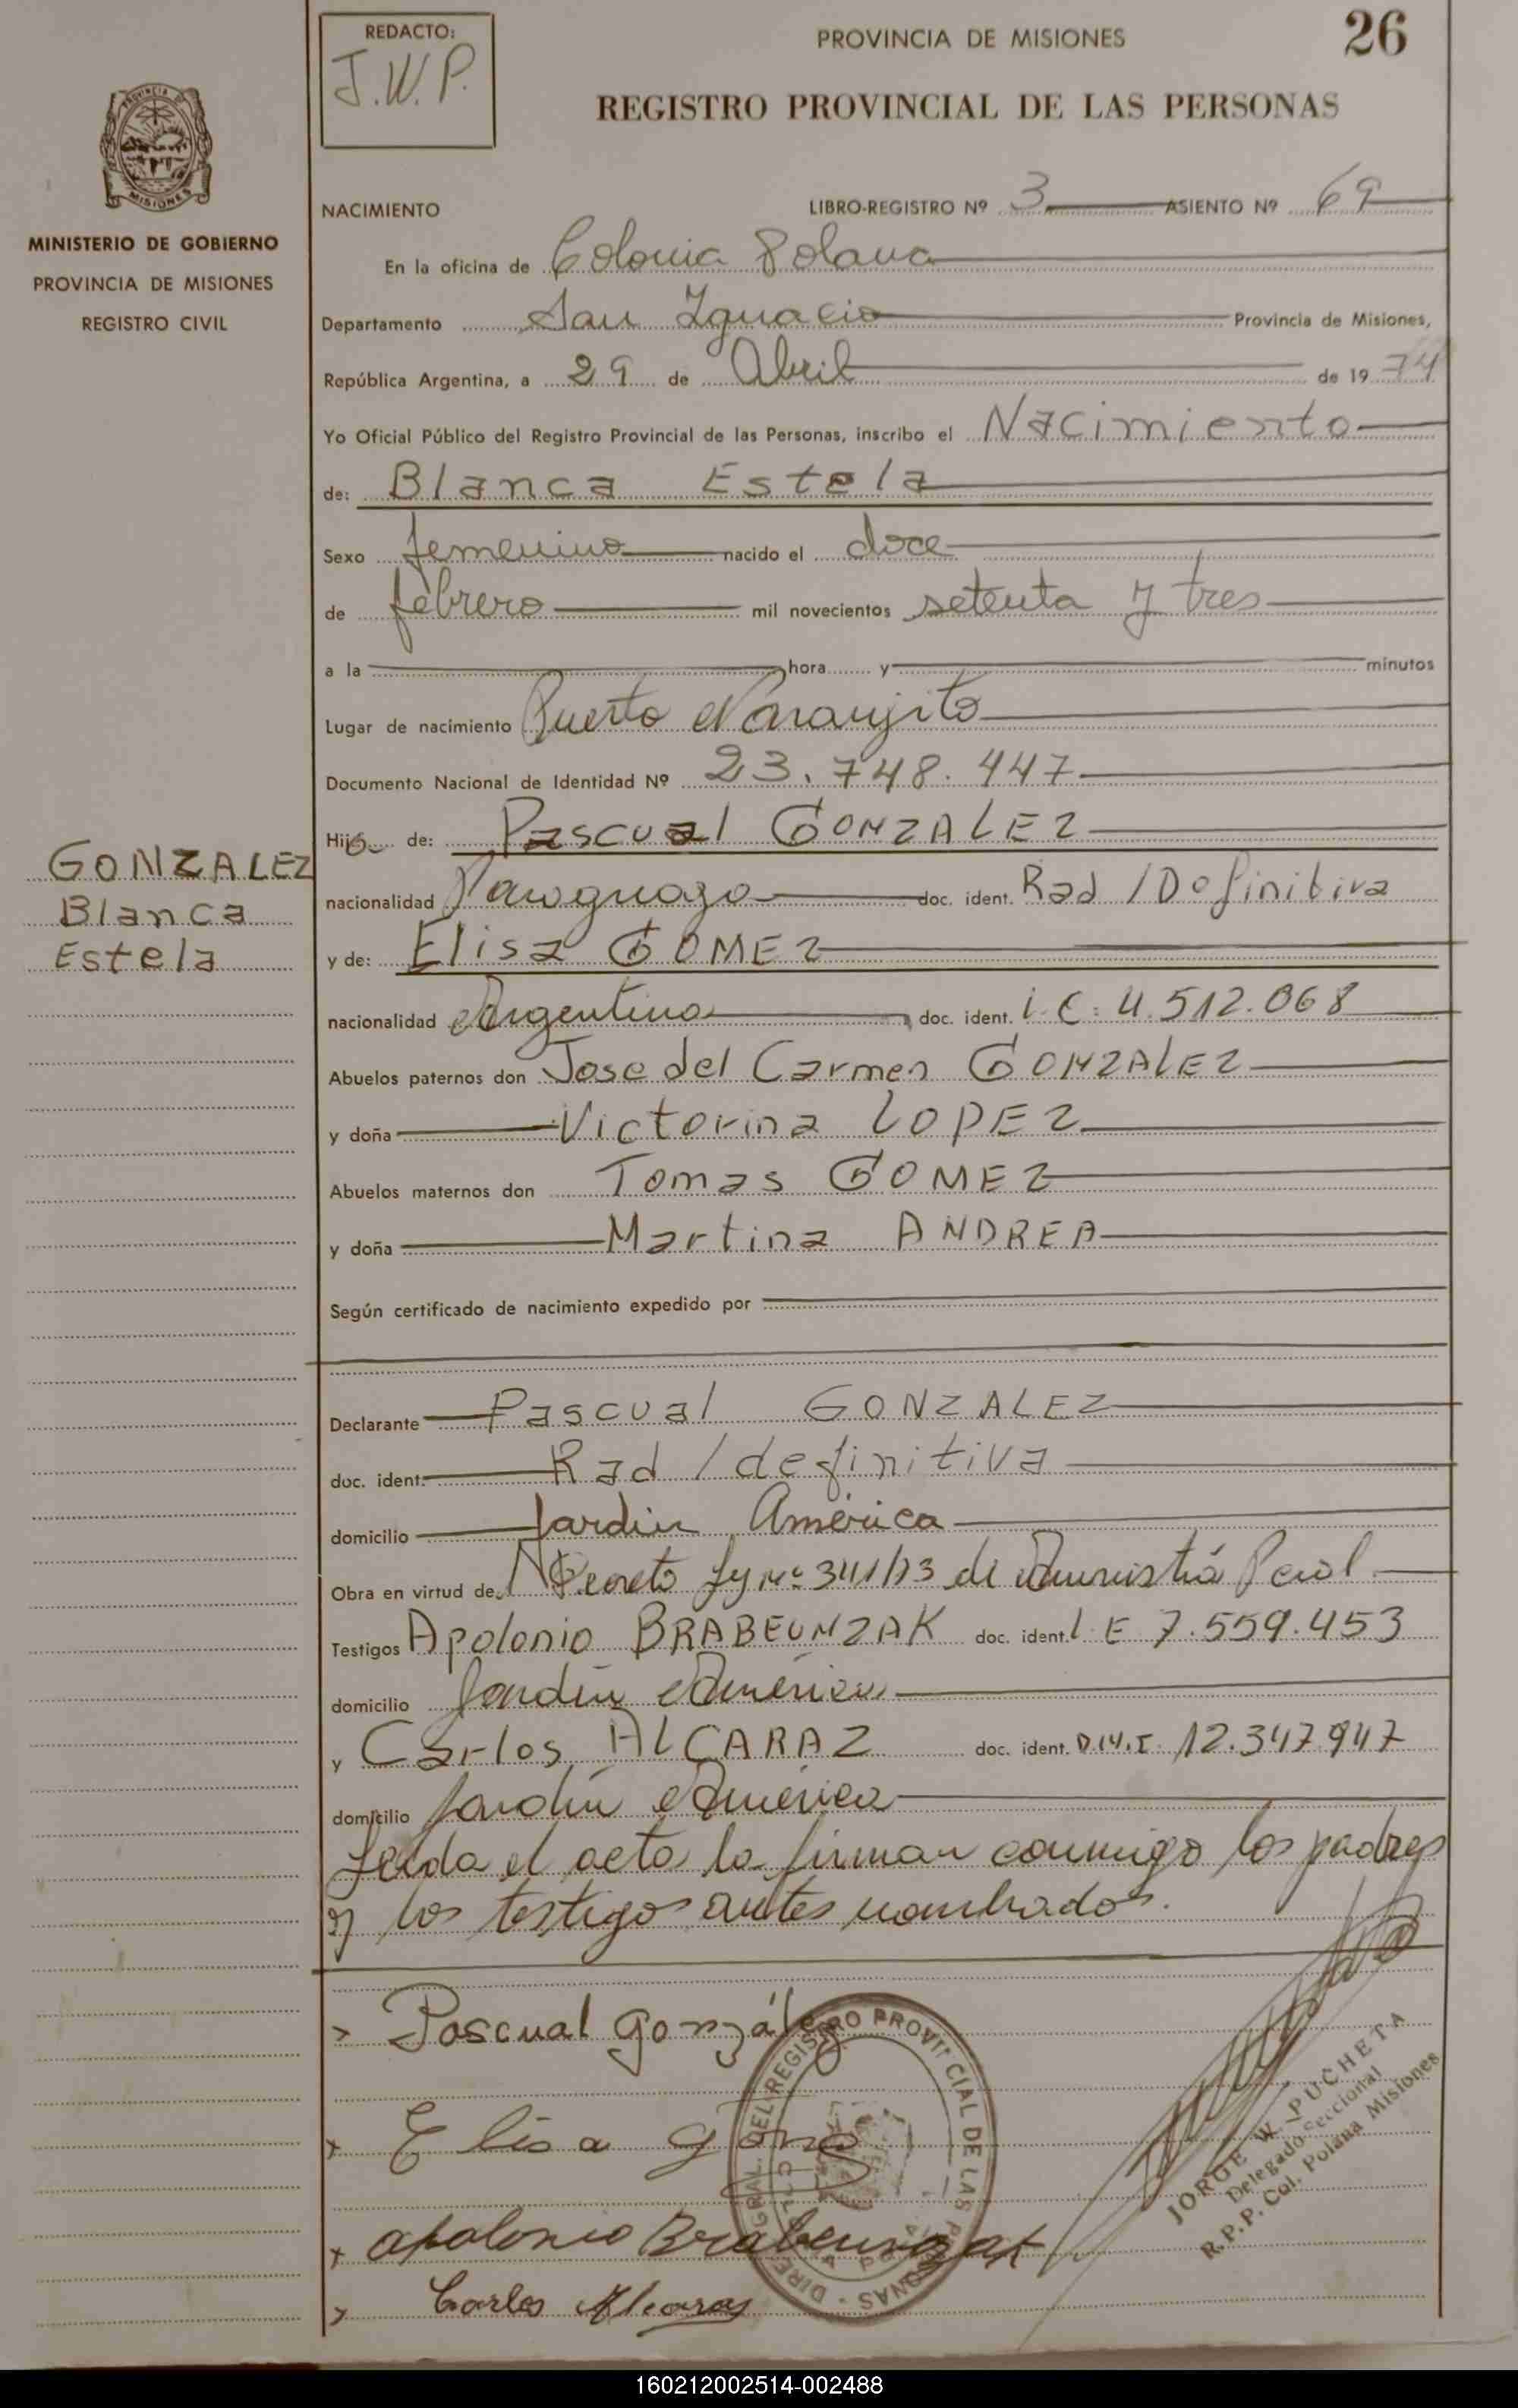 REDACTO:
J.W.P.
PROVINCIA DE MISIONES
26
REGISTRO PROVINCIAL DE LAS PERSONAS
MISIONES
MINISTERIO DE GOBIERNO
PROVINCIA DE MISIONES
REGISTRO CIVIL
NACIMIENTO LIBRO-REGISTRO Nº 3 ASIENTO Nº 69
En la oficina de Colonia Polana
Departamento San Ignacio Provincia de Misiones,
República Argentina, a 29 de Abril de 19 74
Yo Oficial Público del Registro Provincial de las Personas, inscribo el Nacimiento
de: Blanca Estela
Sexo femenino nacido el doce
de febrero mil novecientos setenta y tres
a la hora y minutos
Lugar de nacimiento Puerto Naranjito
Documento Nacional de Identidad Nº 23.748.447
Hija de: Pascual GONZALEZ
GONZALEZ
Blanca
Estela
nacionalidad Paraguaya doc. ident. Rad / Definitiva
y de: Elisa GOMEZ
nacionalidad Argentina doc. ident. L.C. 4.512.068
Abuelos paternos don Jose del Carmen GONZALEZ
y doña Victorina LOPEZ
Abuelos maternos don Tomas GOMEZ
y doña Martina ANDREA
Según certificado de nacimiento expedido por
Declarante Pascual GONZALEZ
doc. ident. Rad / definitiva
domicilio Jardin América
Obra en virtud de Decreto Ley Nº 341/73 de
Testigos Apolonio BRABEUNZAK doc. ident. L.E 7.559.453
domicilio Jardín América
y Carlos ALCARAZ doc. ident. D.N.I. 12.347.947
domicilio Jardín América
Leída el acta la firman conmigo los padres
y los testigos antes nombrados.
Pascual González
Elisa
apolonio Brabeunzak
Carlos Alcaraz
REGISTRO PROVINCIAL DE LAS PERSONAS
JORGE W. PUCHETA
Delegado Seccional
R.P.P. Col. Polana Misiones
160212002514-002488